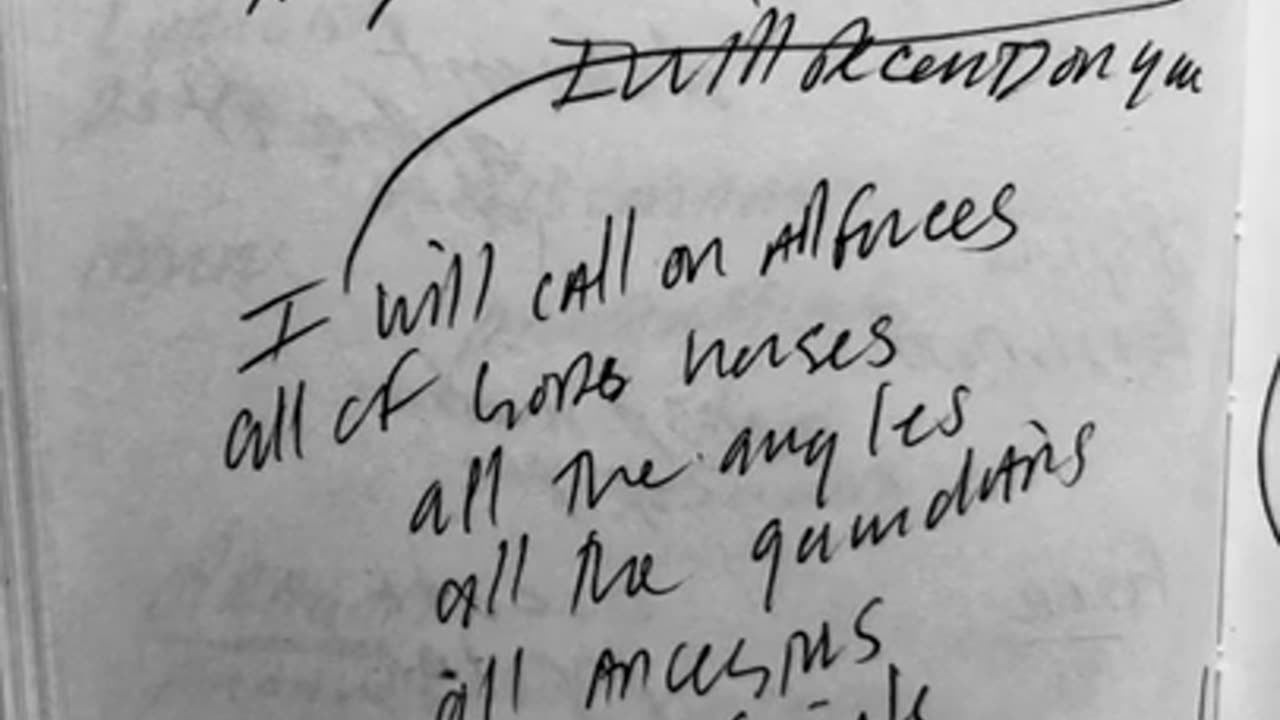 I will Decend on you
I will call on All forces
all of horses
all the angles
all the guardians
all Ancestors